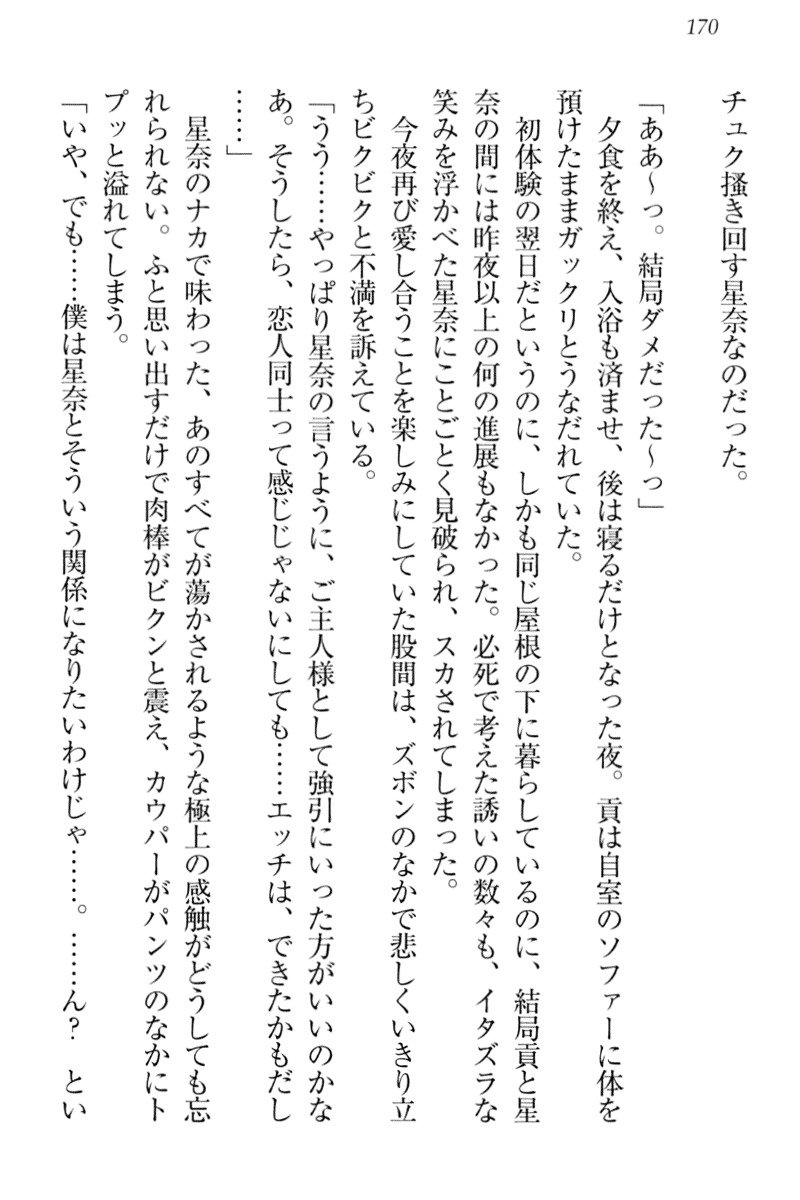 170
チュク掻き回す星奈なのだった。
「ああ～っ。結局ダメだった～っ」
　夕食を終え、入浴も済ませ、後は寝るだけとなった夜。貢は自室のソファーに体を
預けたままガックリとうなだれていた。
　初体験の翌日だというのに、しかも同じ屋根の下に暮らしているのに、結局貢と星
奈の間には昨夜以上の何の進展もなかった。必死で考えた誘いの数々も、イタズラな
笑みを浮かべた星奈にことごとく見破られ、スカされてしまった。
　今夜再び愛し合うことを楽しみにしていた股間は、ズボンのなかで悲しくいきり立
ちビクビクと不満を訴えている。
「うう……やっぱり星奈の言うように、ご主人様として強引にいった方がいいのかな
あ。そうしたら、恋人同士って感じじゃないにしても……エッチは、できたかもだし
……」
　星奈のナカで味わった、あのすべてが蕩かされるような極上の感触がどうしても忘
れられない。ふと思い出すだけで肉棒がビクンと震え、カウパーがパンツのなかにト
プッと溢れてしまう。
「いや、でも……僕は星奈とそういう関係になりたいわけじゃ……。……ん？　とい